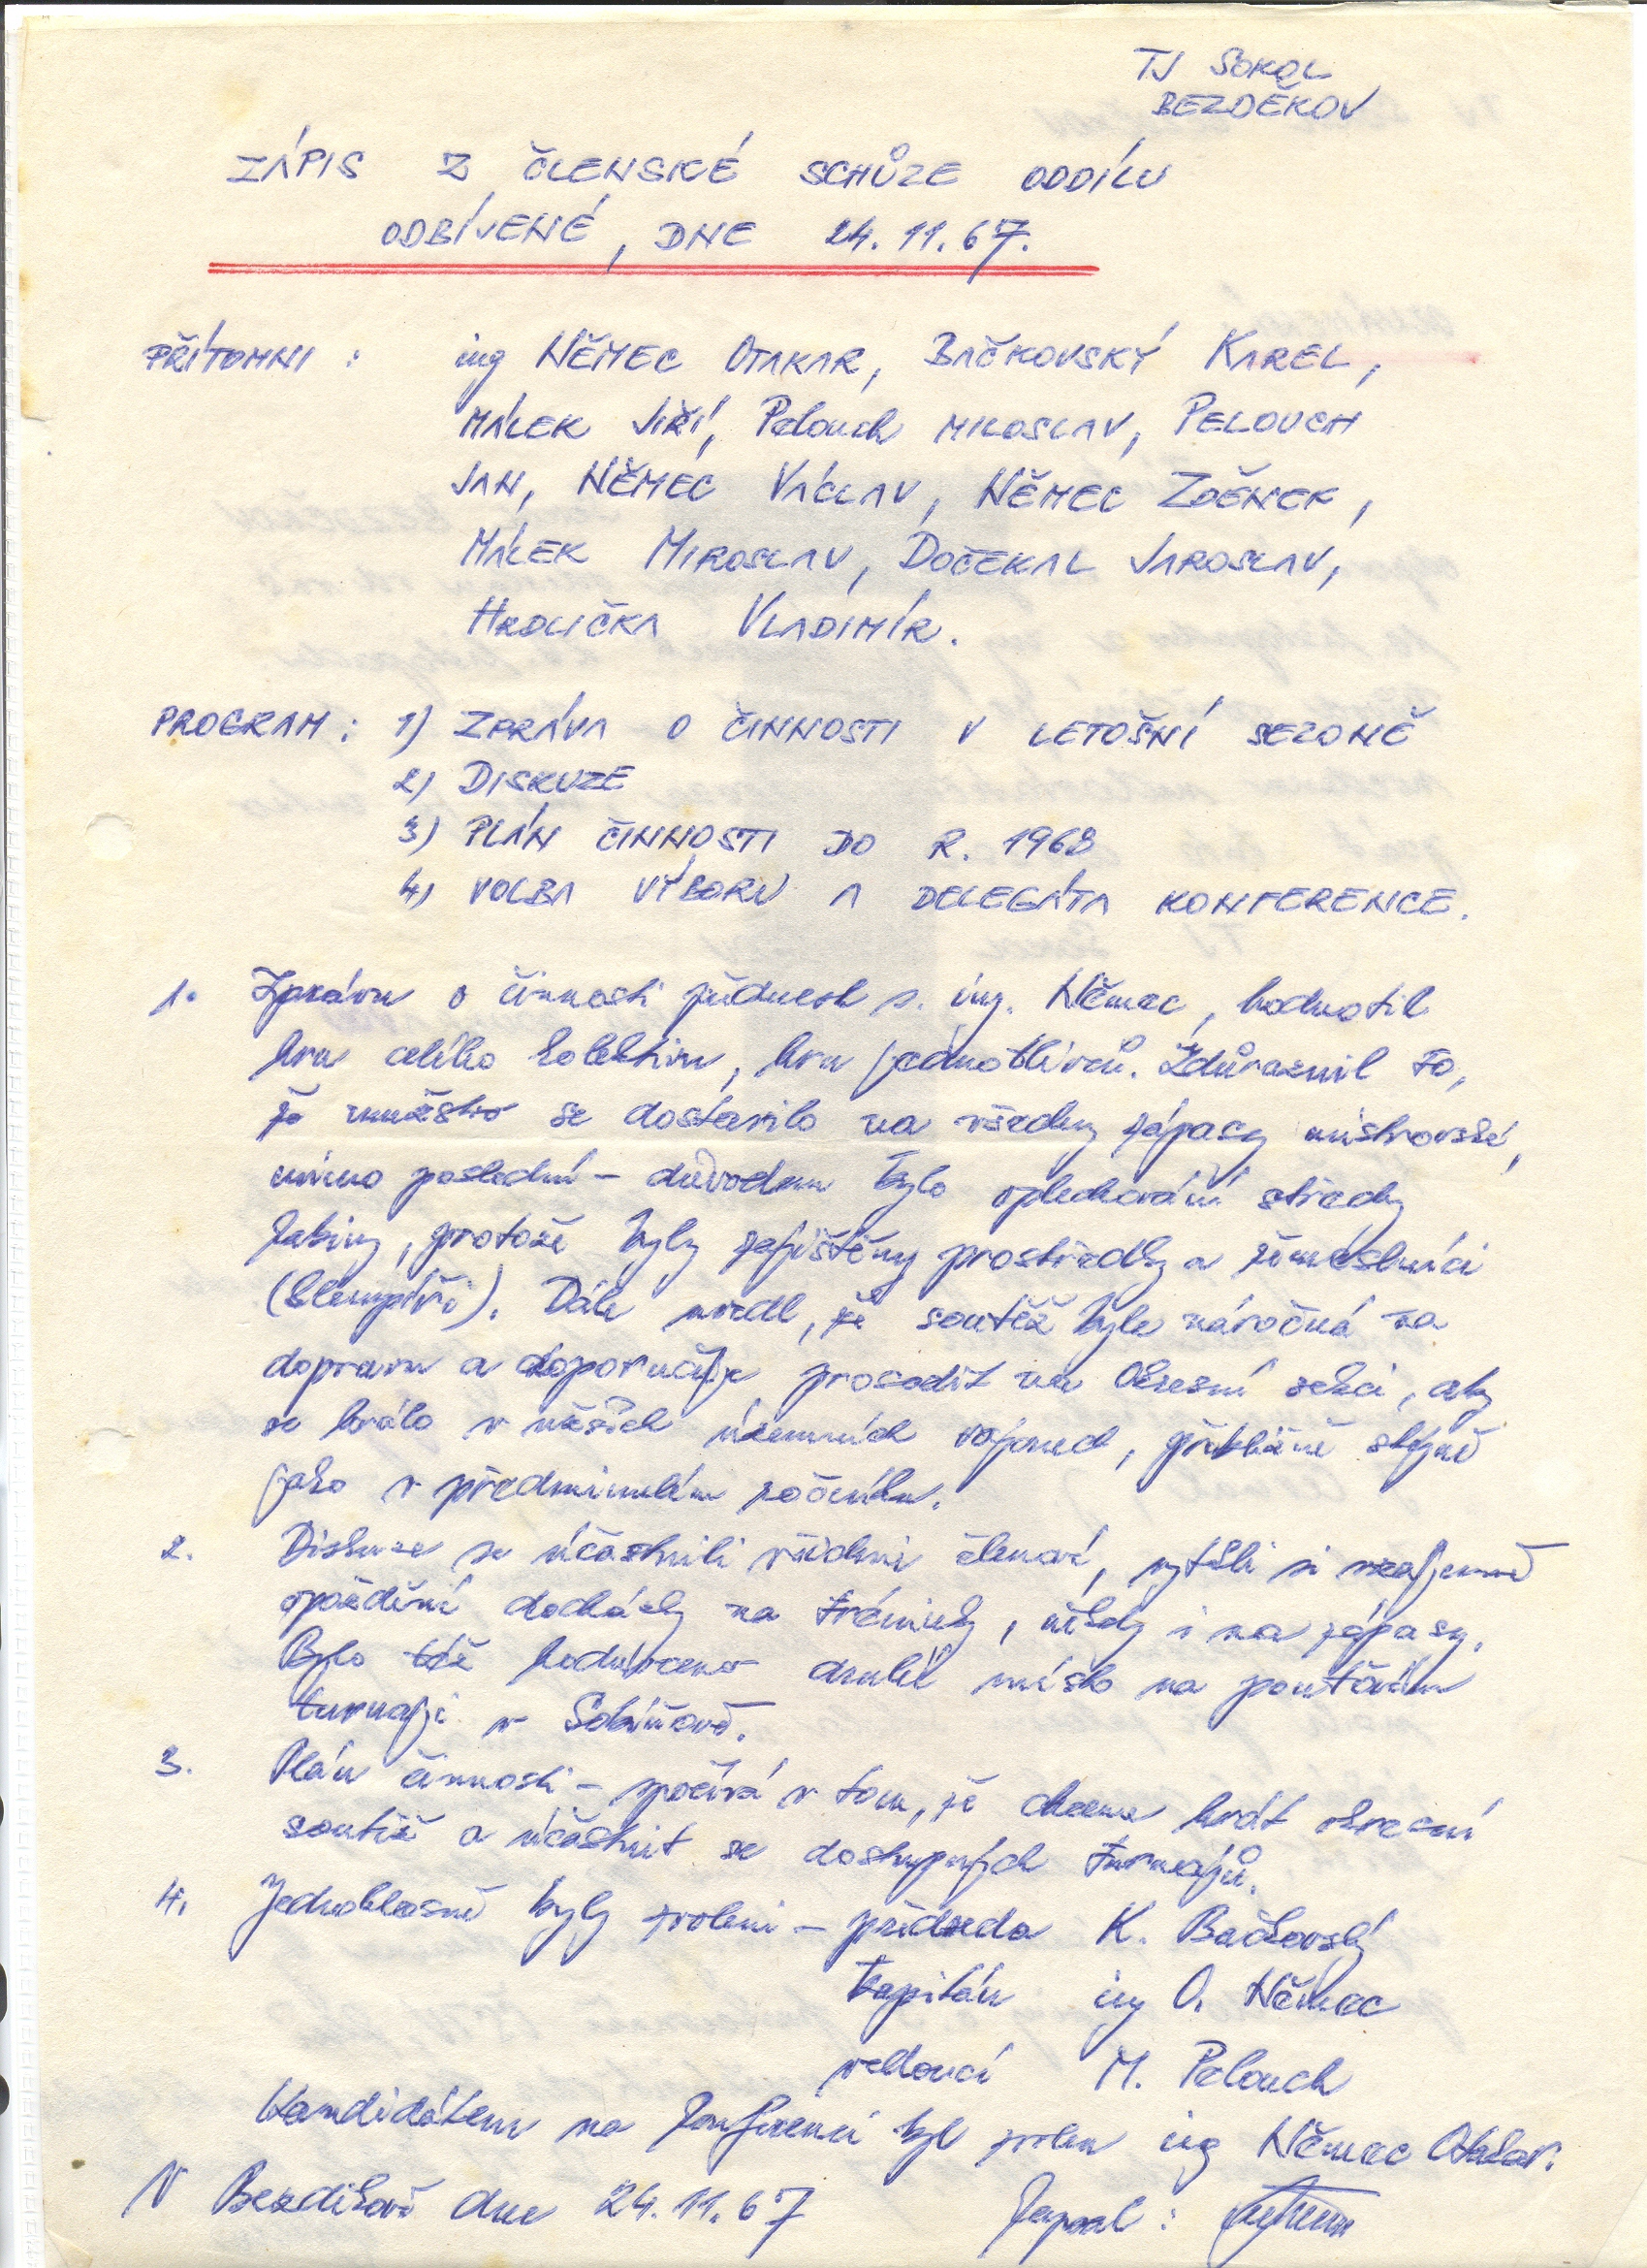 TJ SOKOL
BEZDĚKOV
ZÁPIS Z ČLENSKÉ SCHŮZE ODDÍLU
ODBÍVENÉ, DNE 24.11.67.
PŘÍTOMNI : ing NĚMEC OTAKAR, BAČKOVSKÝ KAREL,
MÁLEK JIŘÍ, Pelouch MILOSLAV, PELOUCH
JAN, NĚMEC VÁCLAV, NĚMEC ZDĚNEK,
MÁLEK MIROSLAV, DOČEKAL JAROSLAV,
HRDLIČKA VLADIMÍR.
PROGRAM : 1) ZPRÁVA O ČINNOSTI V LETOŠNÍ SEZONĚ
2) DISKUZE
3) PLÁN ČINNOSTI DO R. 1968
4) VOLBA VÝBORU A DELEGÁTA KONFERENCE.
1. Zprávu o činnosti přednesl s. ing. Němec, hodnotil
hru celého kolektivu, hru jednotlivců. Zdůraznil to,
že mužstvo se dostavilo na všechny zápasy mistrovské,
mimo poslední - důvodem bylo oplechování střechy
kabiny, protože byly zajištěny prostředky a řemeslníci
(klempíři). Dále uvedl, že soutěž byla náročná na
dopravu a doporučuje prosadit na Okresní sekci, aby
se hrálo v užších územních rajonech, přibližně stejně
jako v předminulém ročníku.
2. Diskuze se účastnili všichni členové, vytkli si vzájemně
opoždění docházky na tréninky, někdy i na zápasy.
Bylo též hodnoceno druhé místo na pouťovém
turnaji v Sobíňově.
3. Plán činnosti - spočívá v tom, že chceme hrát okresní
soutěž a účastnit se dostupných turnajů.
4. Jednohlasně byly zvoleni - předseda K. Bačkovský
kapitán ing O. Němec
vedoucí M. Pelouch
Kandidátem na konferenci byl zvolen ing Němec Otakar.
V Bezděkově dne 24.11.67 Zapsal :